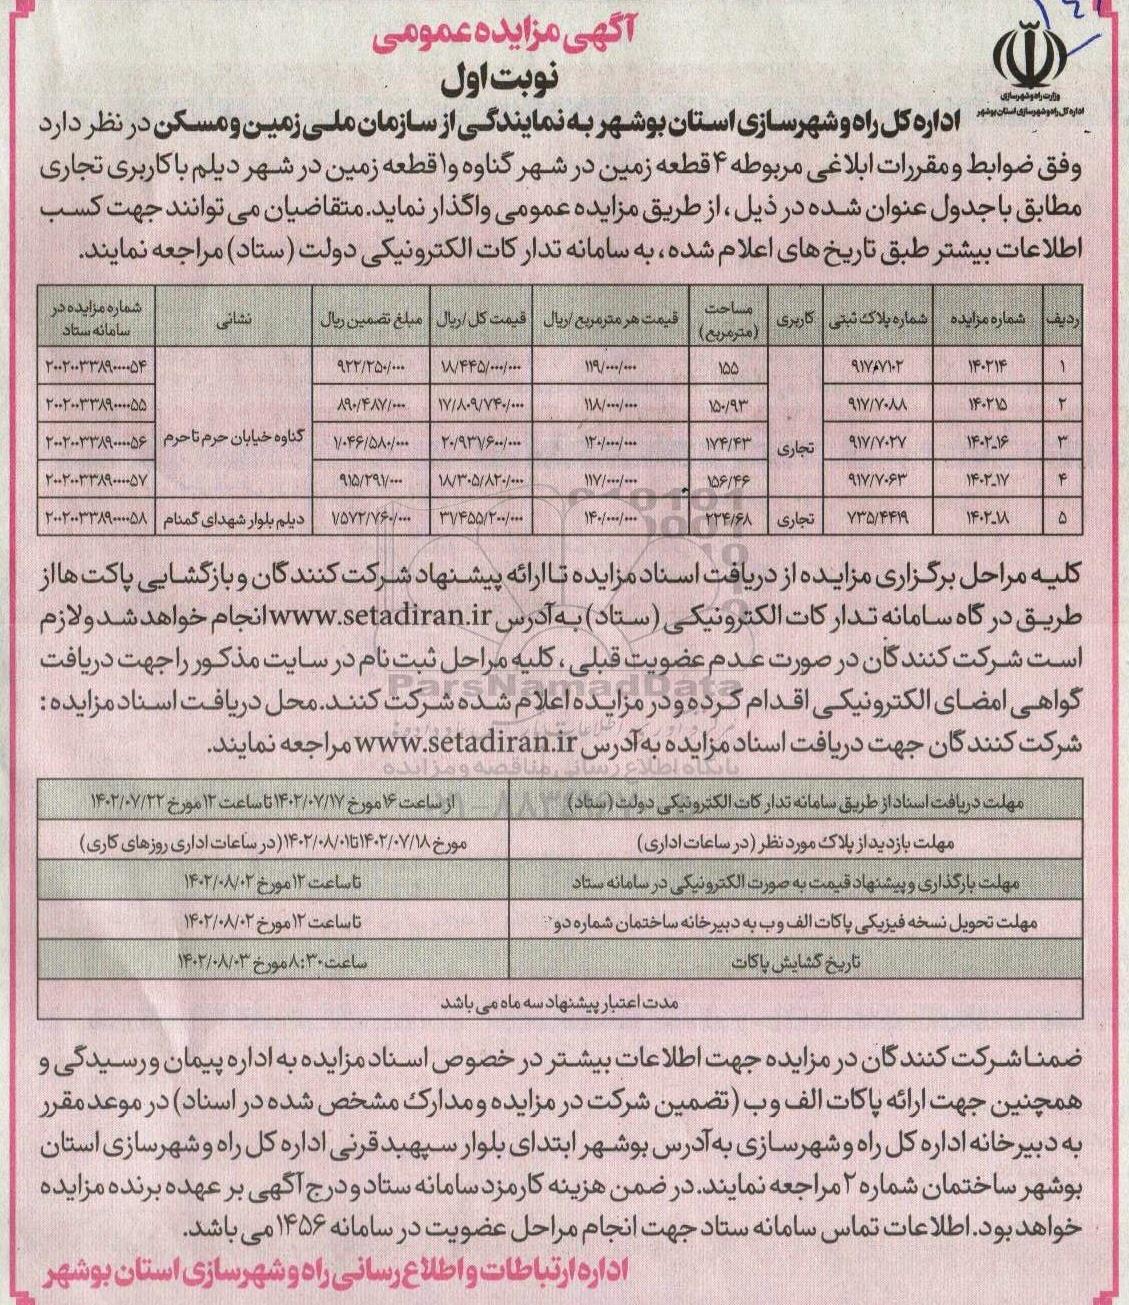 آگهی مزایده عمومی
نوبت اول
وزارت راه و شهرسازی
اداره کل راه و شهرسازی استان بوشهر
اداره کل راه و شهرسازی استان بوشهر به نمایندگی از سازمان ملی زمین و مسکن در نظر دارد
وفق ضوابط و مقررات ابلاغی مربوطه ۴ قطعه زمین در شهر گناوه و۱ قطعه زمین در شهر دیلم با کاربری تجاری
مطابق با جدول عنوان شده در ذیل ، از طریق مزایده عمومی واگذار نماید. متقاضیان می توانند جهت کسب
اطلاعات بیشتر طبق تاریخ های اعلام شده ، به سامانه تدارکات الکترونیکی دولت (ستاد) مراجعه نمایند.
ردیف | شماره مزایده | شماره پلاک ثبتی | کاربری | مساحت (مترمربع) | قیمت هر مترمربع /ریال | قیمت کل /ریال | مبلغ تضمین ریال | نشانی | شماره مزایده در سامانه ستاد
۱ | ۱۴۰۲۱۴ | ۹۱۷۰۷۱۰۲ | تجاری | ۱۵۵ | ۱۱۹/۰۰۰/۰۰۰ | ۱۸/۴۴۵/۰۰۰/۰۰۰ | ۹۲۲/۲۵۰/۰۰۰ | گناوه خیابان حرم تا حرم | ۲۰۰۲۰۰۳۳۸۹۰۰۰۰۵۴
۲ | ۱۴۰۲۱۵ | ۹۱۷/۷۰۸۸ | ۱۵۰/۹۳ | ۱۱۸/۰۰۰/۰۰۰ | ۱۷/۸۰۹/۷۴۰/۰۰۰ | ۸۹۰/۴۸۷/۰۰۰ | ۲۰۰۲۰۰۳۳۸۹۰۰۰۰۵۵
۳ | ۱۴۰۲_۱۶ | ۹۱۷/۷۰۲۷ | ۱۷۴/۴۳ | ۱۲۰/۰۰۰/۰۰۰ | ۲۰/۹۳۱/۶۰۰/۰۰۰ | ۱/۰۴۶/۵۸۰/۰۰۰ | ۲۰۰۲۰۰۳۳۸۹۰۰۰۰۵۶
۴ | ۱۴۰۲_۱۷ | ۹۱۷/۷۰۶۳ | ۱۵۶/۴۶ | ۱۱۷/۰۰۰/۰۰۰ | ۱۸/۳۰۵/۸۲۰/۰۰۰ | ۹۱۵/۲۹۱/۰۰۰ | ۲۰۰۲۰۰۳۳۸۹۰۰۰۰۵۷
۵ | ۱۴۰۲_۱۸ | ۷۳۵/۴۴۱۹ | تجاری | ۲۲۴/۶۸ | ۱۴۰/۰۰۰/۰۰۰ | ۳۱/۴۵۵/۲۰۰/۰۰۰ | ۱/۵۷۲/۷۶۰/۰۰۰ | دیلم بلوار شهدای گمنام | ۲۰۰۲۰۰۳۳۸۹۰۰۰۰۵۸
کلیه مراحل برگزاری مزایده از دریافت اسناد مزایده تا ارائه پیشنهاد شرکت کنندگان و بازگشایی پاکت ها از
طریق درگاه سامانه تدارکات الکترونیکی (ستاد) به آدرس www.setadiran.ir انجام خواهد شد و لازم
است شرکت کنندگان در صورت عدم عضویت قبلی ، کلیه مراحل ثبت نام در سایت مذکور را جهت دریافت
گواهی امضای الکترونیکی اقدام کرده و در مزایده اعلام شده شرکت کنند. محل دریافت اسناد مزایده :
شرکت کنندگان جهت دریافت اسناد مزایده به آدرس www.setadiran.ir مراجعه نمایند.
ParsNamadData
پایگاه اطلاع رسانی مناقصه و مزایده
مهلت دریافت اسناد از طریق سامانه تدارکات الکترونیکی دولت (ستاد) | از ساعت ۱۶ مورخ ۱۴۰۲/۰۷/۱۷ تا ساعت ۱۲ مورخ ۱۴۰۲/۰۷/۲۲
مهلت بازدید از پلاک مورد نظر (در ساعات اداری) | مورخ ۱۴۰۲/۰۷/۱۸ تا ۱۴۰۲/۰۸/۰۱ (در ساعات اداری روزهای کاری)
مهلت بارگذاری و پیشنهاد قیمت به صورت الکترونیکی در سامانه ستاد | تا ساعت ۱۲ مورخ ۱۴۰۲/۰۸/۰۲
مهلت تحویل نسخه فیزیکی پاکات الف و ب به دبیرخانه ساختمان شماره دو | تا ساعت ۱۲ مورخ ۱۴۰۲/۰۸/۰۲
تاریخ گشایش پاکات | ساعت ۸:۳۰ مورخ ۱۴۰۲/۰۸/۰۳
مدت اعتبار پیشنهاد سه ماه می باشد
ضمنا شرکت کنندگان در مزایده جهت اطلاعات بیشتر در خصوص اسناد مزایده به اداره پیمان و رسیدگی و
همچنین جهت ارائه پاکات الف و ب (تضمین شرکت در مزایده و مدارک مشخص شده در اسناد) در موعد مقرر
به دبیرخانه اداره کل راه و شهرسازی به آدرس بوشهر ابتدای بلوار سپهبد قرنی اداره کل راه و شهرسازی استان
بوشهر ساختمان شماره ۲ مراجعه نمایند. در ضمن هزینه کارمزد سامانه ستاد و درج آگهی بر عهده برنده مزایده
خواهد بود. اطلاعات تماس سامانه ستاد جهت انجام مراحل عضویت در سامانه ۱۴۵۶ می باشد.
اداره ارتباطات و اطلاع رسانی راه و شهرسازی استان بوشهر